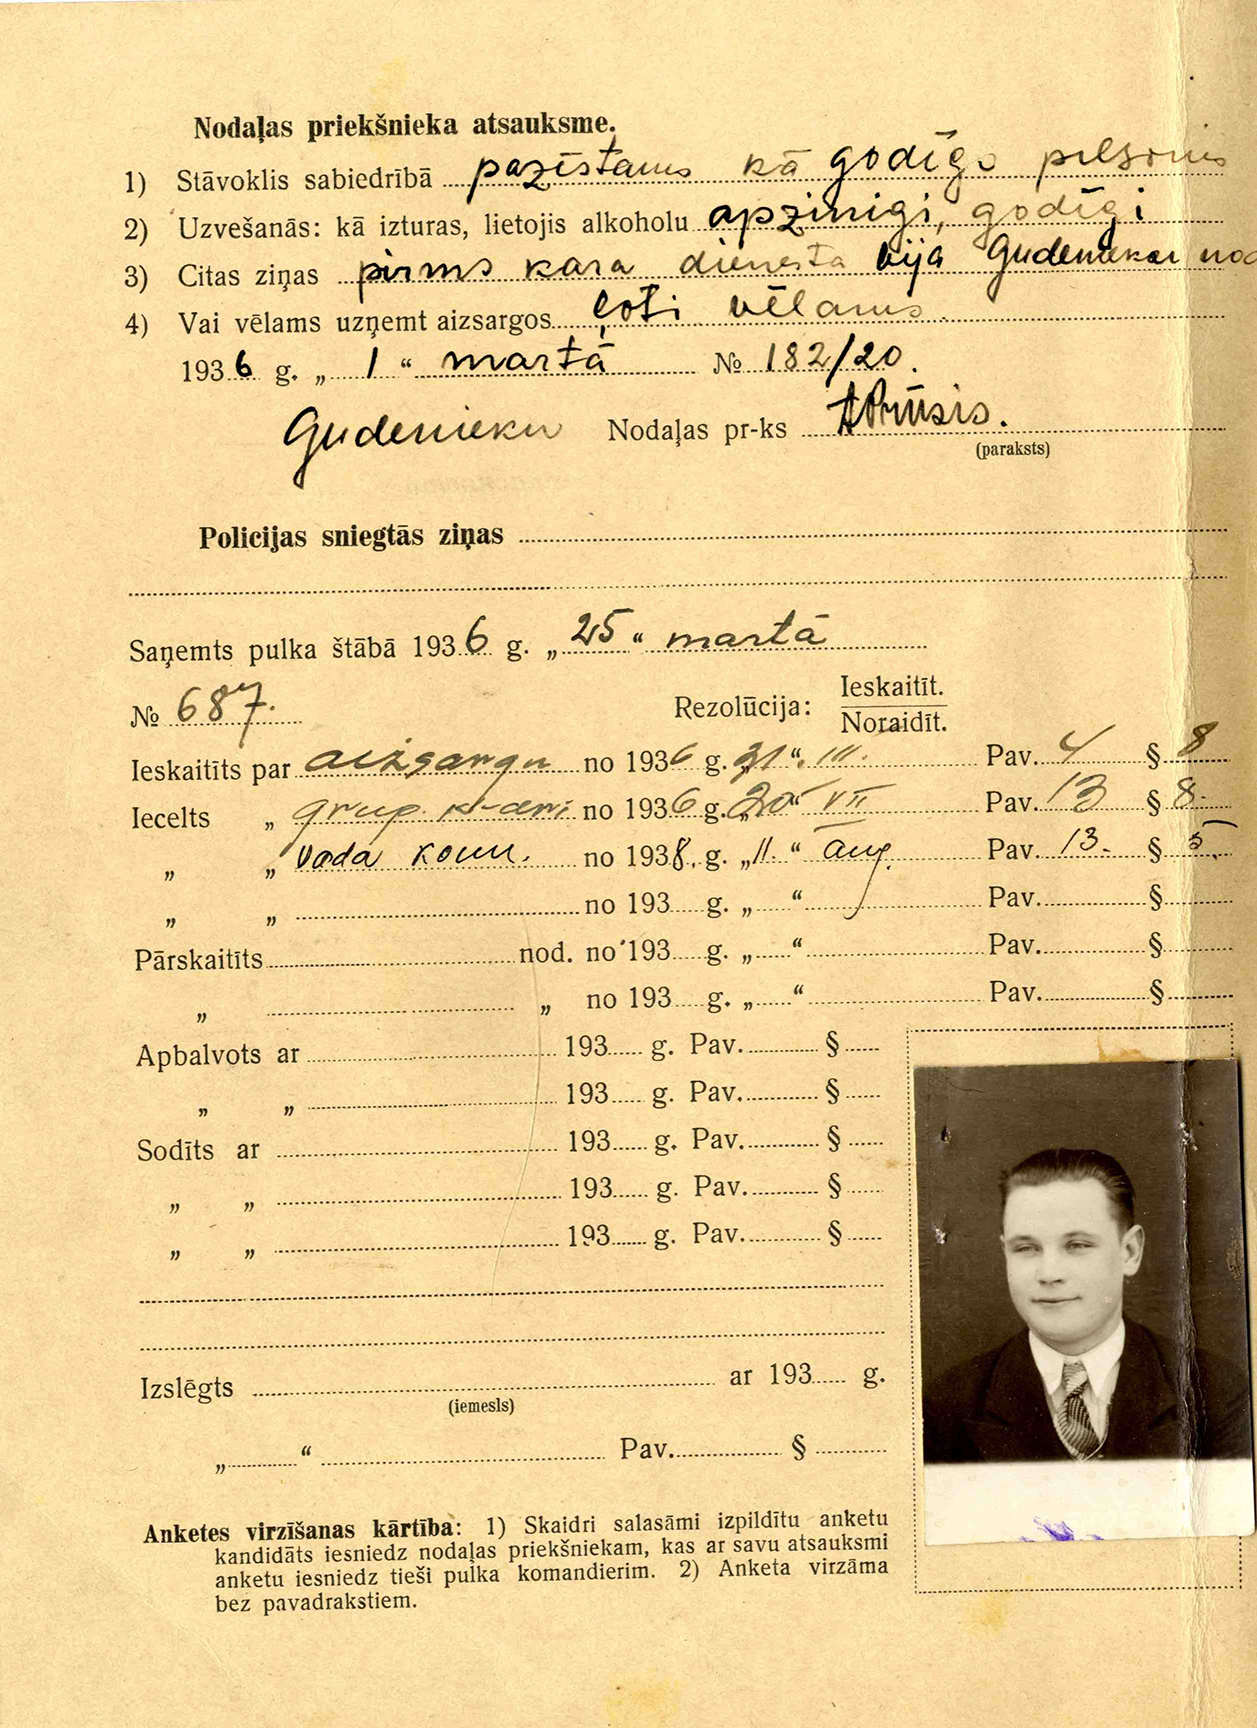 Nodaļas priekšnieka atsauksme.
1) Stāvoklis sabiedrībā pazīstams kā godīgs pilsonis
2) Uzvešanās: kā izturas, lietojis alkoholu apzinīgi, godīgi
3) Citas ziņas pirms kara dienesta bija Gudenieku nod
4) Vai vēlams uzņemt aizsargos ļoti vēlams.
1936 g. „1“ martā № 182/20.
Gudenieku Nodaļas pr-ks
(paraksts)
Policijas sniegtās ziņas
Saņemts pulka štābā 1936 g. „25“ martā
№ 687.
Rezolūcija: Ieskaitīt.
Noraidīt.
Ieskaitīts par aizsargu no 1936 g. „31“ III. Pav. 4 § 8
Iecelts „ grup. k-dri no 1936 g. „20“ VII Pav. 13 § 8.
„ „ vada kom. no 1938. g. „11.“ aug. Pav. 13. § 5.
„ „ no 193 g. „ “ Pav. §
Pārskaitīts nod. no 193 g. „ “ Pav. §
„ „ no 193 g. „ “ Pav. §
Apbalvots ar 193 g. Pav. §
„ „ 193 g. Pav. §
Sodīts ar 193 g. Pav. §
„ „ 193 g. Pav. §
„ „ 193 g. Pav. §
Izslēgts ar 193 g.
(iemesls)
„ “ Pav. §
Anketes virzīšanas kārtība: 1) Skaidri salasāmi izpildītu anketu
kandidāts iesniedz nodaļas priekšniekam, kas ar savu atsauksmi
anketu iesniedz tieši pulka komandierim. 2) Anketa virzāma
bez pavadrakstiem.